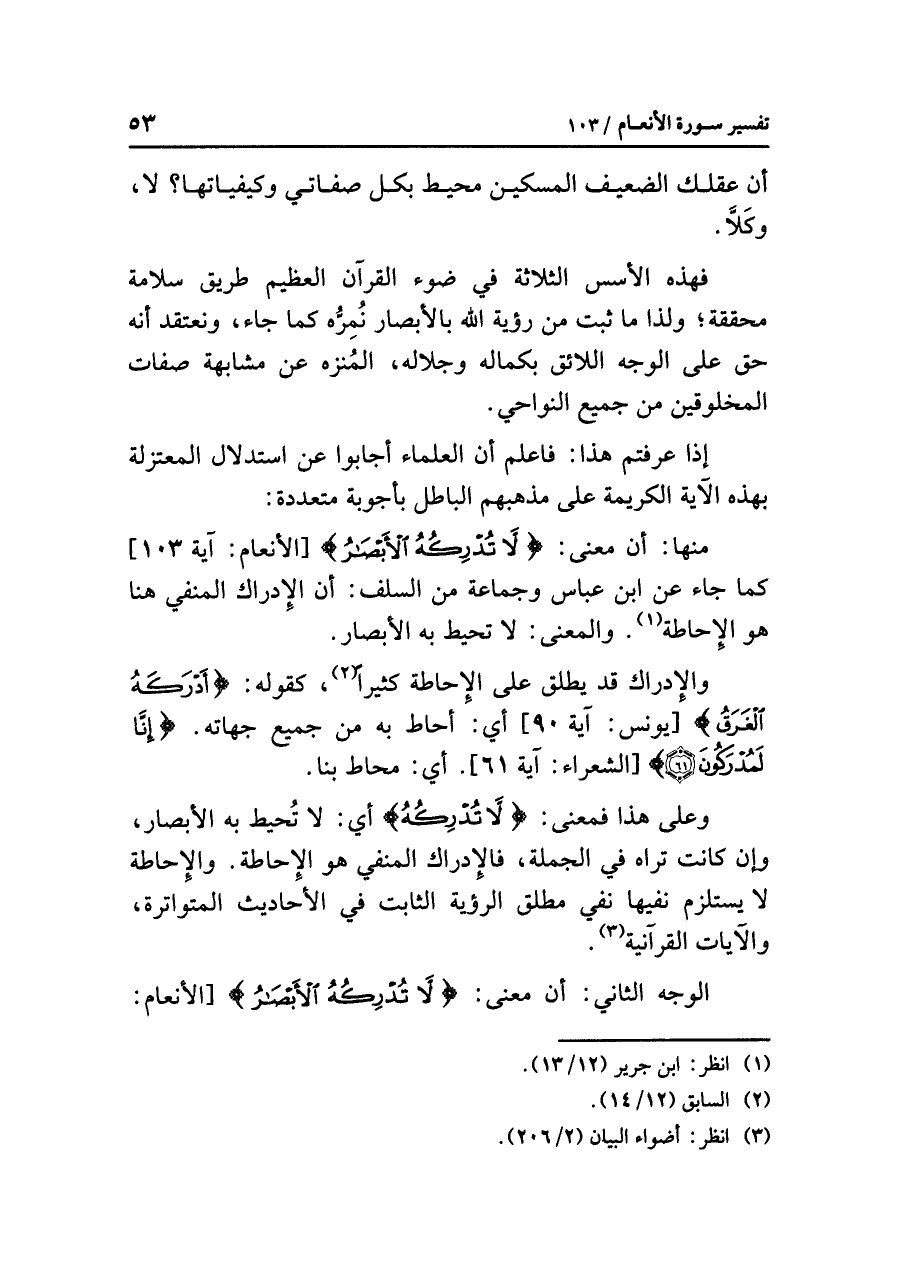 تفسير سورة الأنعام / ١٠٣ ٥٣
أن عقلك الضعيف المسكين محيط بكل صفاتي وكيفياتها؟ لا،
وكَلَّا.
فهذه الأسس الثلاثة في ضوء القرآن العظيم طريق سلامة
محققة؛ ولذا ما ثبت من رؤية الله بالأبصار نُمِرُّه كما جاء، ونعتقد أنه
حق على الوجه اللائق بكماله وجلاله، المُنزه عن مشابهة صفات
المخلوقين من جميع النواحي.
إذا عرفتم هذا: فاعلم أن العلماء أجابوا عن استدلال المعتزلة
بهذه الآية الكريمة على مذهبهم الباطل بأجوبة متعددة:
منها: أن معنى: ﴿ لَّا تُدْرِكُهُ ٱلْأَبْصَٰرُ ﴾ [الأنعام: آية ١٠٣]
كما جاء عن ابن عباس وجماعة من السلف: أن الإِدراك المنفي هنا
هو الإِحاطة(١). والمعنى: لا تحيط به الأبصار.
والإِدراك قد يطلق على الإِحاطة كثيراً(٢)، كقوله: ﴿ أَدْرَكَهُ
ٱلْغَرَقُ ﴾ [يونس: آية ٩٠] أي: أحاط به من جميع جهاته. ﴿ إِنَّا
لَمُدْرَكُونَ ٦١ ﴾ [الشعراء: آية ٦١]. أي: محاط بنا.
وعلى هذا فمعنى: ﴿ لَّا تُدْرِكُهُ ﴾ أي: لا تُحيط به الأبصار،
وإن كانت تراه في الجملة، فالإِدراك المنفي هو الإِحاطة. والإِحاطة
لا يستلزم نفيها نفي مطلق الرؤية الثابت في الأحاديث المتواترة،
والآيات القرآنية(٣).
الوجه الثاني: أن معنى: ﴿ لَّا تُدْرِكُهُ ٱلْأَبْصَٰرُ ﴾ [الأنعام:
(١) انظر: ابن جرير (١٢/ ١٣).
(٢) السابق (١٢/ ١٤).
(٣) انظر: أضواء البيان (٢/ ٢٠٦).